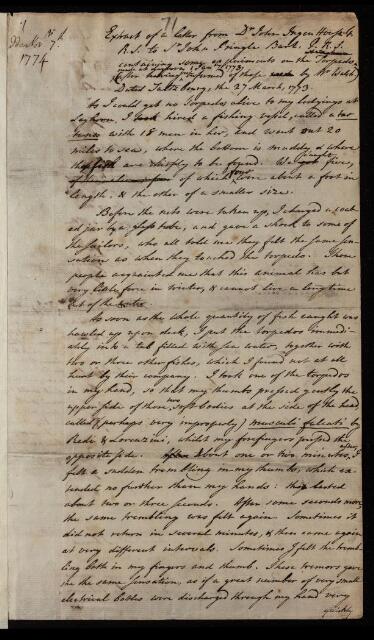 71
1
March 7.
1774
Extract of a letter from Dr. John Ingen Housz
R.S. to Sr. John Pringle Bart. P.R.S.
containing some experiments on the Torpedo,
(after having informed of those by Mr Walsh)
Dated Saltzburg, the 27 March, 1773.
As I could get no Torpedos alive to my lodgings at
Leghorn, I hired a fishing vessel, called a tar
tana with 18 men in her, and went out 20
miles to sea, where the bottom is muddy, & where
the fish are chiefly to be found. We caught five,
of which four were about a foot in
length, & the other of a smaller size.
Before the nets were taken up, I charged a coat
ed jar by a glass tube, and gave a shock to some of
the sailors, who all told me they felt the same sen
sation as when they touched the Torpedo. These
people acquainted me that this animal has but
very little force in winter, & cannot live a long time
out of the water.
As soon as the whole quantity of fish caught was
hawled up upon deck, I put the Torpedos immedi
ately into a tub filled with sea water, together with
two or three other fishes, which I found not at all
hurt by their company. I took one of the torpedos
in my hand, so that my thumbs pressed gently the
upper side of those two soft bodies at the side of the head
called (perhaps very improperly) musculi falcati by
Redi & Lorenzini, whilst my forefingers pressed the
opposite side. About one or two minutes after, I
felt a sudden trembling in my thumbs, which ex
tended no further than my hands: this lasted
about two or three seconds. After some seconds more
the same trembling was felt again. Sometimes it
did not return in several minutes, & then came again
at very different intervals. Sometimes I felt the tremb
ling both in my fingers and thumb. These tremors gave
me the same sensation, as if a great number of very small
electrical bottles were discharged through my hand very
quickly